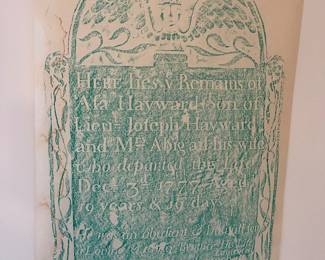 Here lies yᵉ Remains of
Asa Hayward Son of
Lieuᵗ Joseph Hayward
and Mʳˢ Abigail his wife
who departed this Life
Decʳ 3ᵈ 1777 Aged
19 years & 19 days
He was an obedient & Dutiful Son
a Loving & kind Brother